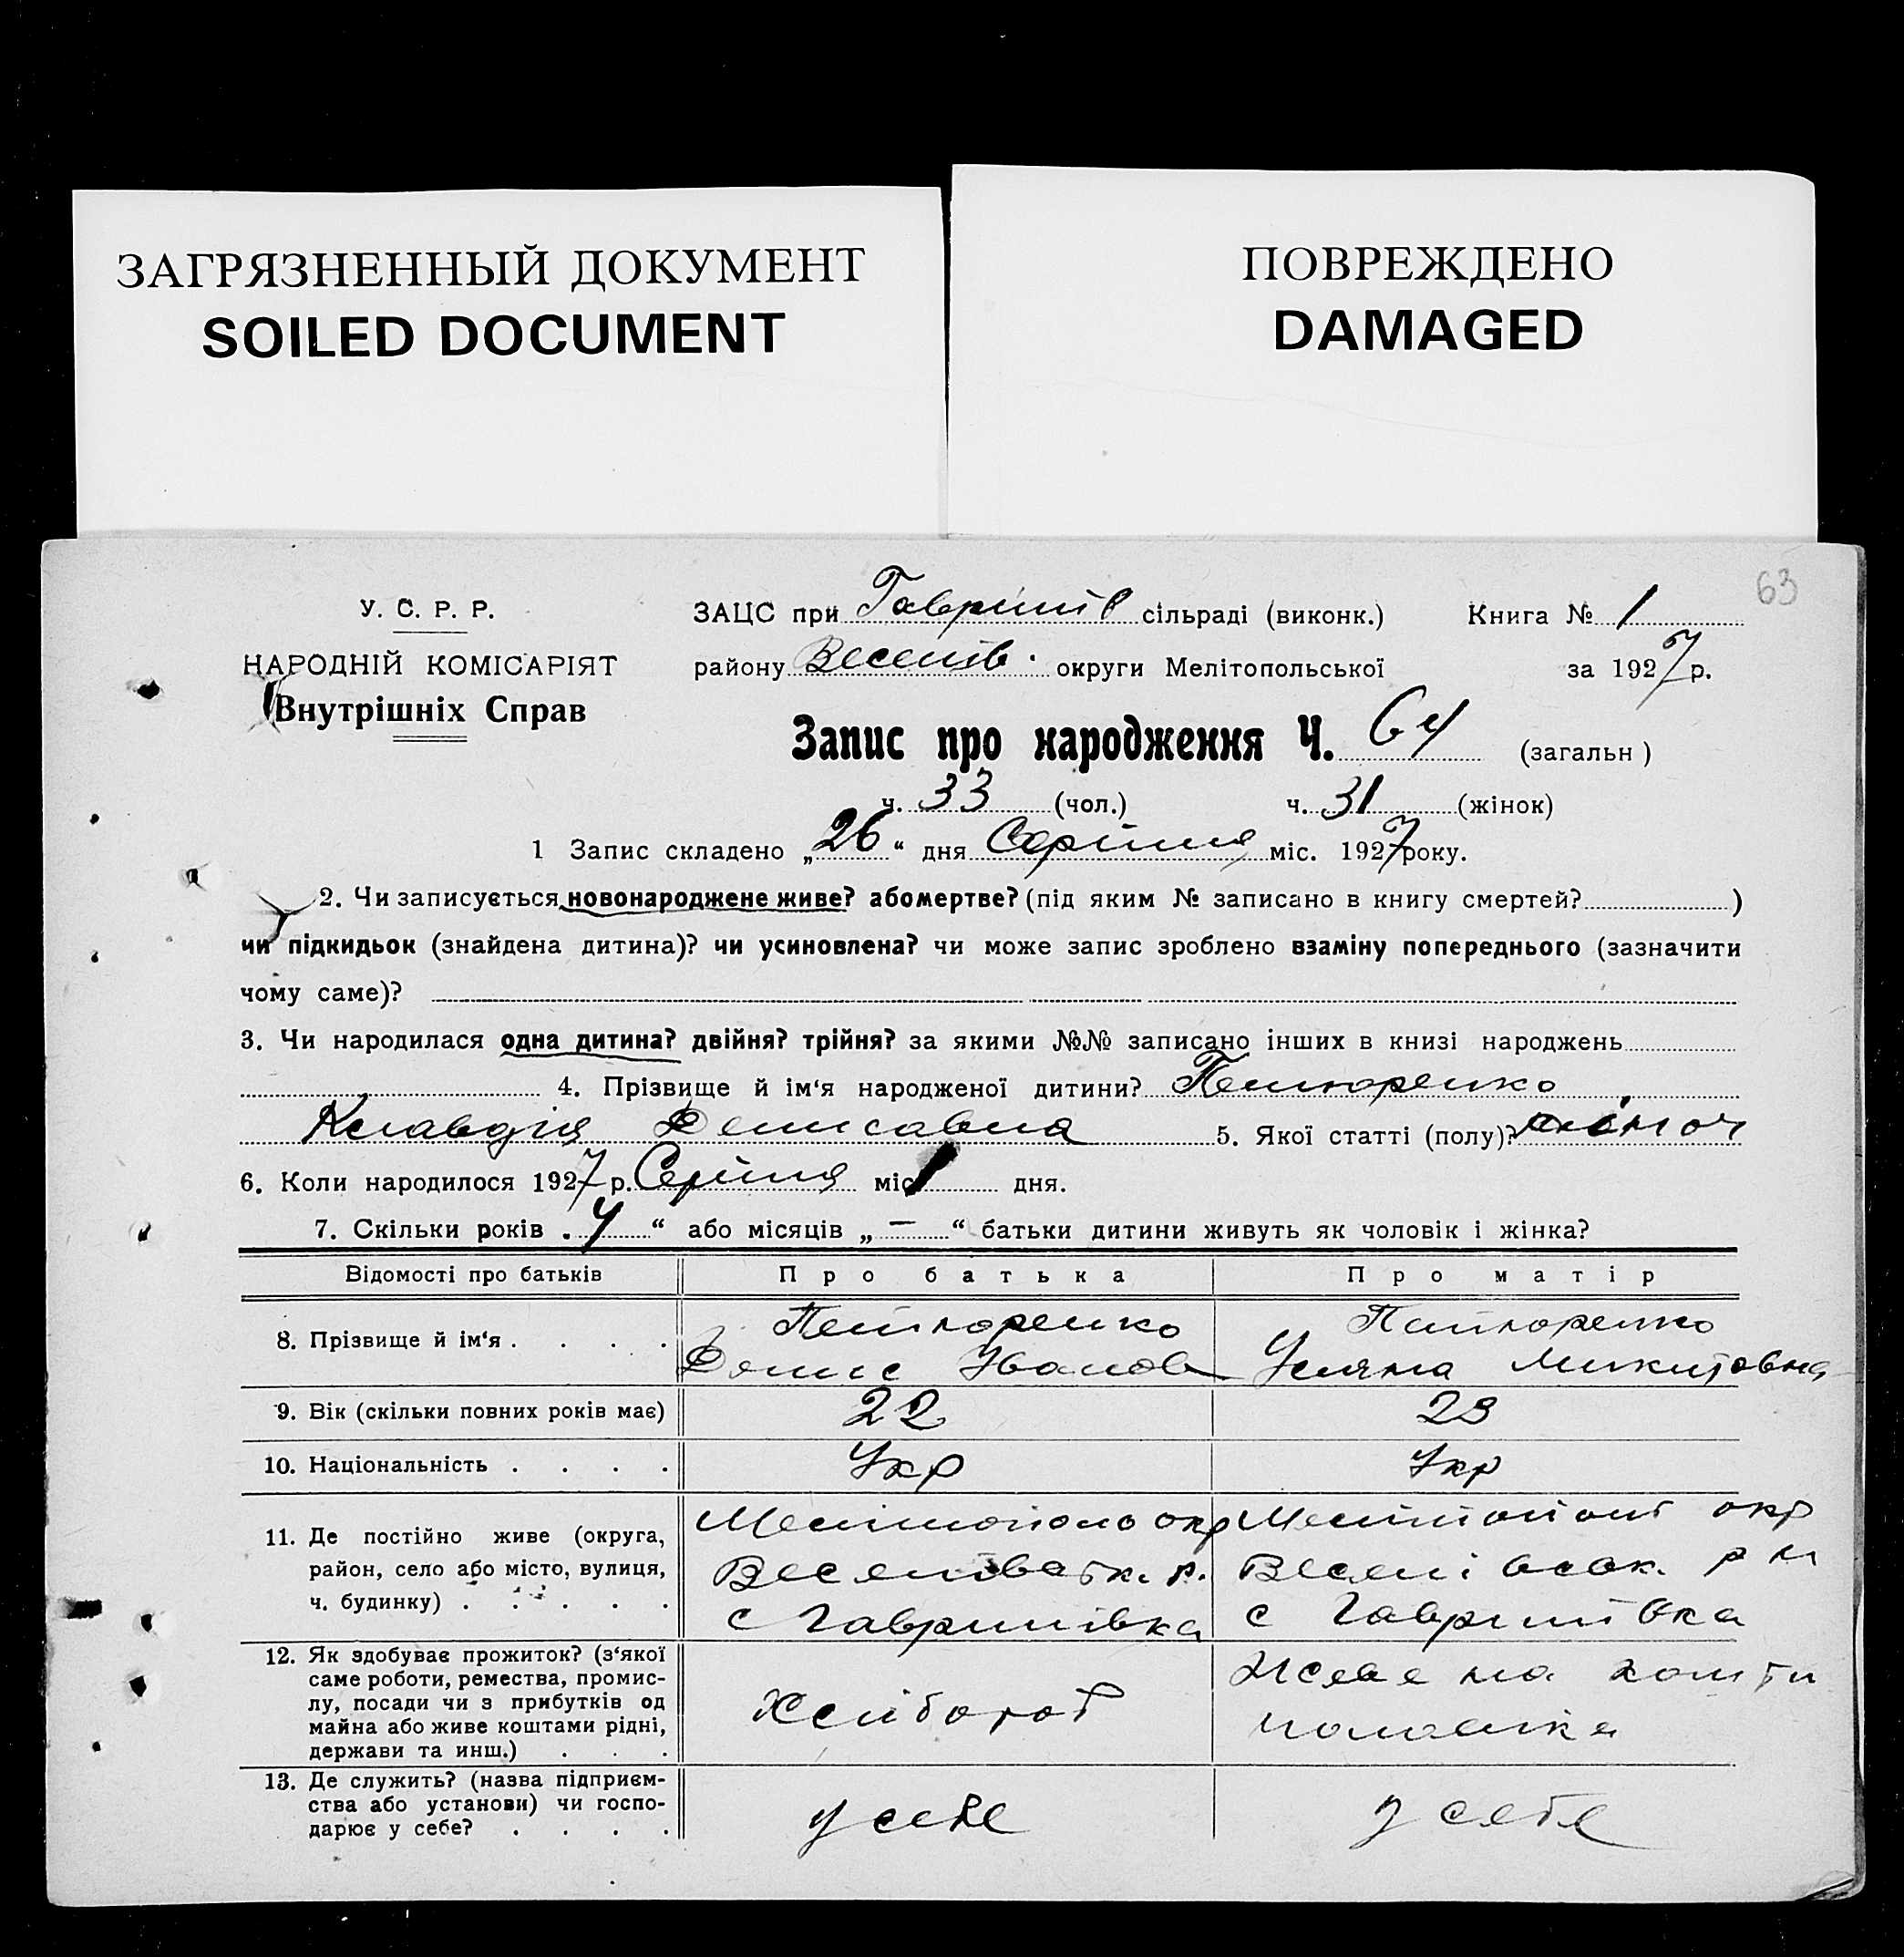 ЗАГРЯЗНЕННЫЙ ДОКУМЕНТ
SOILED DOCUMENT
ПОВРЕЖДЕНО
DAMAGED
63
У. С. Р. Р.
НАРОДНІЙ КОМІСАРІЯТ
Внутрішніх Справ
ЗАЦС при Гаврилів сільраді (виконк.) Книга № 1
району Веселів. округи Мелітопольської за 1927 р.
Запис про народження Ч. 64 (загальн)
ч. 33 (чол.) ч. 31 (жінок)
1 Запис складено „26“ дня Серпня міс. 1927 року.
2. Чи записується новонароджене живе? або мертве? (під яким № записано в книгу смертей? )
чи підкидьок (знайдена дитина)? чи усиновлена? чи може запис зроблено взаміну попереднього (зазначити
чому саме)?
3. Чи народилася одна дитина? двійня? трійня? за якими №№ записано інших в книзі народжень
4. Прізвище й ім‘я народженої дитини? Петюренко
Клавдія Денисавна 5. Якої статті (полу)? жіноч
6. Коли народилося 1927 р. Серпня міс 1 дня.
7. Скільки років „4“ або місяців „—“ батьки дитини живуть як чоловік і жінка?
Відомості про батьків Про батька Про матір
8. Прізвище й ім‘я . . . . Петюренко Петюренко
Денис Іванов Уляна Микитовна
9. Вік (скільки повних років має) 22 23
10. Національність . . . . Укр Укр
11. Де постійно живе (округа,
район, село або місто, вулиця,
ч. будинку) . . . . .
окр
р.
с Гаврилівка
окр
р н
с Гаврилівка
12. Як здобуває прожиток? (з‘якої
саме роботи, ремества, промис-
лу, посади чи з прибутків од
майна або живе коштами рідні,
держави та инш.) . . .
Хлібороб
Живе на кошти
чоловіка
13. Де служить? (назва підприєм-
ства або установи) чи госпо-
дарює у себе? . . . .
у себе
у себе